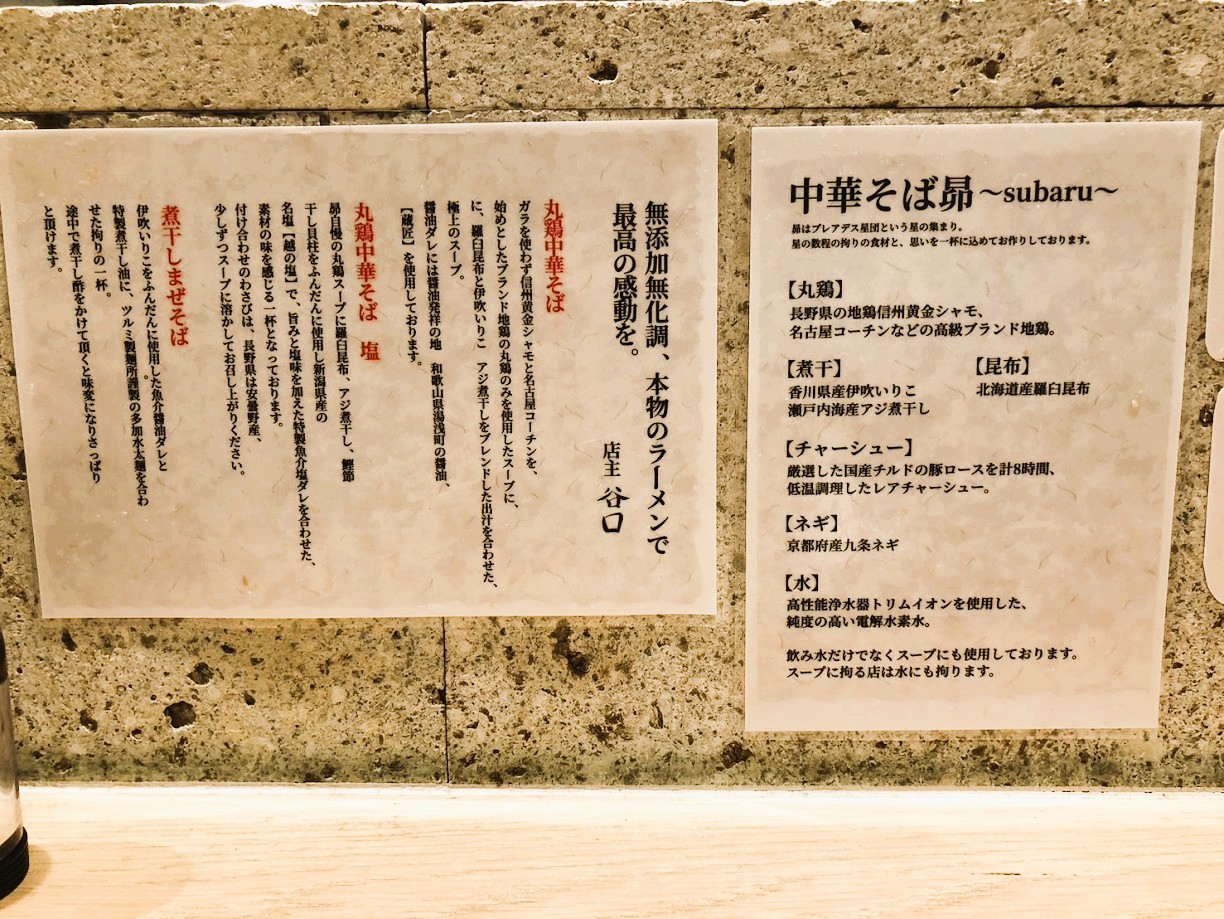 無添加無化調、本物のラーメンで
最高の感動を。
店主 谷口
丸鶏中華そば
ガラを使わず信州黄金シャモと名古屋コーチンを、
始めとしたブランド地鶏の丸鶏のみを使用したスープに、
に、羅臼昆布と伊吹いりこ　アジ煮干しをブレンドした出汁を合わせた、
極上のスープ。
醤油ダレには醤油発祥の地　和歌山県湯浅町の醤油、
【蔵匠】を使用しております。
丸鶏中華そば　塩
昴自慢の丸鶏スープに羅臼昆布、アジ煮干し、鰹節
干し貝柱をふんだんに使用し新潟県産の
名塩【越の塩】で、旨みと塩味を加えた特製魚介塩ダレを合わせた、
素材の味を感じる一杯となっております。
付け合わせのわさびは、長野県は安曇野産、
少しずつスープに溶かしてお召し上がりください。
煮干しまぜそば
伊吹いりこをふんだんに使用した魚介醤油ダレと
特製煮干し油に、ツルミ製麺所謹製の多加水太麺を合わ
せた拘りの一杯。
途中で煮干し酢をかけて頂くと味変になりさっぱり
と頂けます。
中華そば昴～subaru～
昴はプレアデス星団という星の集まり。
星の数程の拘りの食材と、思いを一杯に込めてお作りしております。
【丸鶏】
長野県の地鶏信州黄金シャモ、
名古屋コーチンなどの高級ブランド地鶏。
【煮干】
香川県産伊吹いりこ
瀬戸内海産アジ煮干し
【昆布】
北海道産羅臼昆布
【チャーシュー】
厳選した国産チルドの豚ロースを計8時間、
低温調理したレアチャーシュー。
【ネギ】
京都府産九条ネギ
【水】
高性能浄水器トリムイオンを使用した、
純度の高い電解水素水。
飲み水だけでなくスープにも使用しております。
スープに拘る店は水にも拘ります。